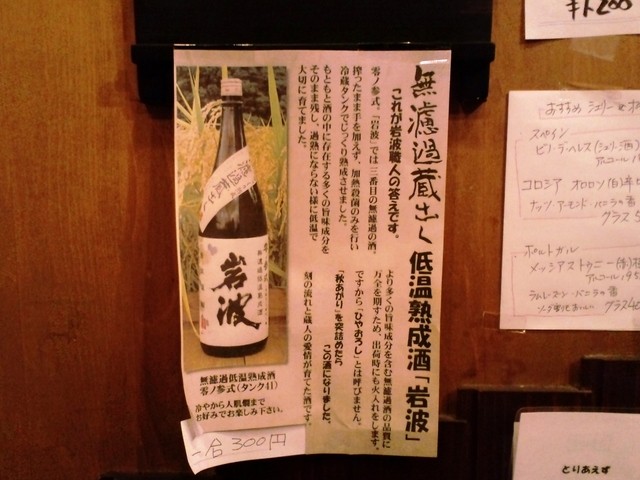 無濾過蔵出し 低温熟成酒「岩波」
これが岩波職人の答えです。
零ノ参式。「岩波」では三番目の無濾過の酒。
搾ったまま手を加えず、加熱殺菌のみを行い
冷蔵タンクでじっくり熟成させました。
もともと酒の中に存在する多くの旨味成分を
そのまま残し、過熟にならない様に低温で
大切に育てました。
より多くの旨味成分を含む無濾過酒の品質に
万全を期すため、出荷時にも火入れをします。
ですから「ひやおろし」とは呼びません。
「秋あがり」を突詰めたら
この酒になりました。
刻の流れと蔵人の愛情が育てた酒です。
無濾過蔵出し
岩波
無濾過低温熟成酒
零ノ参式(タンク41)
冷やから人肌燗まで
お好みでお楽しみ下さい。
一合 300円
おすすめ シェリー
スペイン
アルコール
コロシア オロロソ
ナッツ アーモンド・バニラの香
グラス
ポルトガル
メッシアストゥニー
アルコール 19
ラムレーズン・バニラの香
グラス
とりあえず